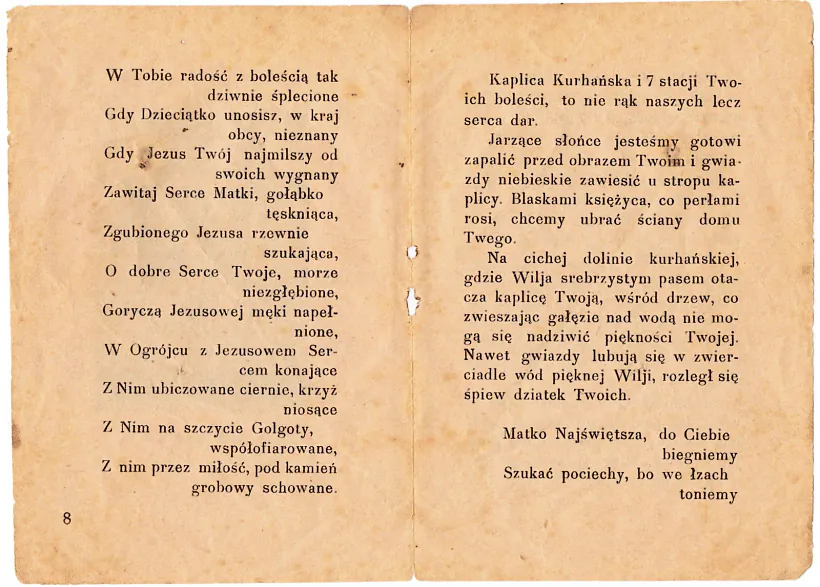 W Tobie radość z boleścią tak
dziwnie śplecione
Gdy Dzieciątko unosisz, w kraj
obcy, nieznany
Gdy Jezus Twój najmilszy od
swoich wygnany
Zawitaj Serce Matki, gołąbko
tęskniąca,
Zgubionego Jezusa rzewnie
szukająca,
O dobre Serce Twoje, morze
niezgłębione,
Goryczą Jezusowej męki napeł-
nione,
W Ogrójcu z Jezusowem Ser-
cem konające
Z Nim ubiczowane ciernie, krzyż
niosące
Z Nim na szczycie Golgoty,
współofiarowane,
Z nim przez miłość, pod kamień
grobowy schowane.
8
Kaplica Kurhańska i 7 stacji Two-
ich boleści, to nie rąk naszych lecz
serca dar.
Jarzące słońce jesteśmy gotowi
zapalić przed obrazem Twoim i gwia-
zdy niebieskie zawiesić u stropu ka-
plicy. Blaskami księżyca, co perłami
rosi, chcemy ubrać ściany domu
Twego.
Na cichej dolinie kurhańskiej,
gdzie Wilja srebrzystym pasem ota-
cza kaplicę Twoją, wśród drzew, co
zwieszając gałęzie nad wodą nie mo-
gą się nadziwić piękności Twojej.
Nawet gwiazdy lubują się w zwier-
ciadle wód pięknej Wilji, rozległ się
śpiew dziatek Twoich.
Matko Najświętsza, do Ciebie
biegniemy
Szukać pociechy, bo we łzach
toniemy